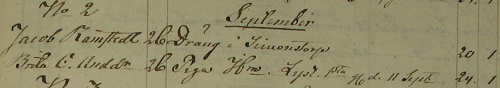 No 2
September
Jacob Ramstedt 26 Dräng i Simonstorp 20 1
Brita C. 26 Piga Hm. Lyst. 1sta d. 11 Sept 24. 1